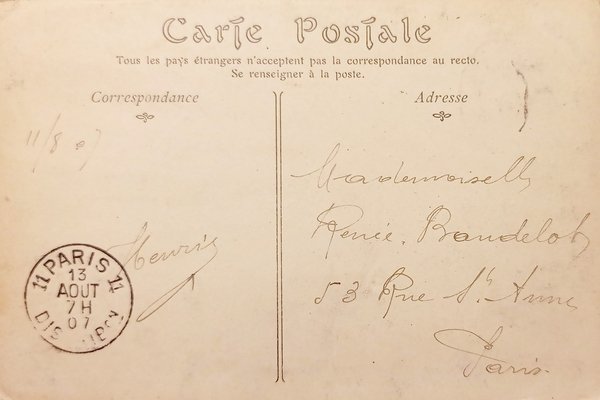 Carte Postale
Tous les pays étrangers n'acceptent pas la correspondance au recto.
Se renseigner à la poste.
Correspondance
Adresse
11/8 07
Henri
11 PARIS 11
13
AOUT
7H
07
DIS
Mademoiselle
Renée Baudelot
53 Rue St Anne
Paris